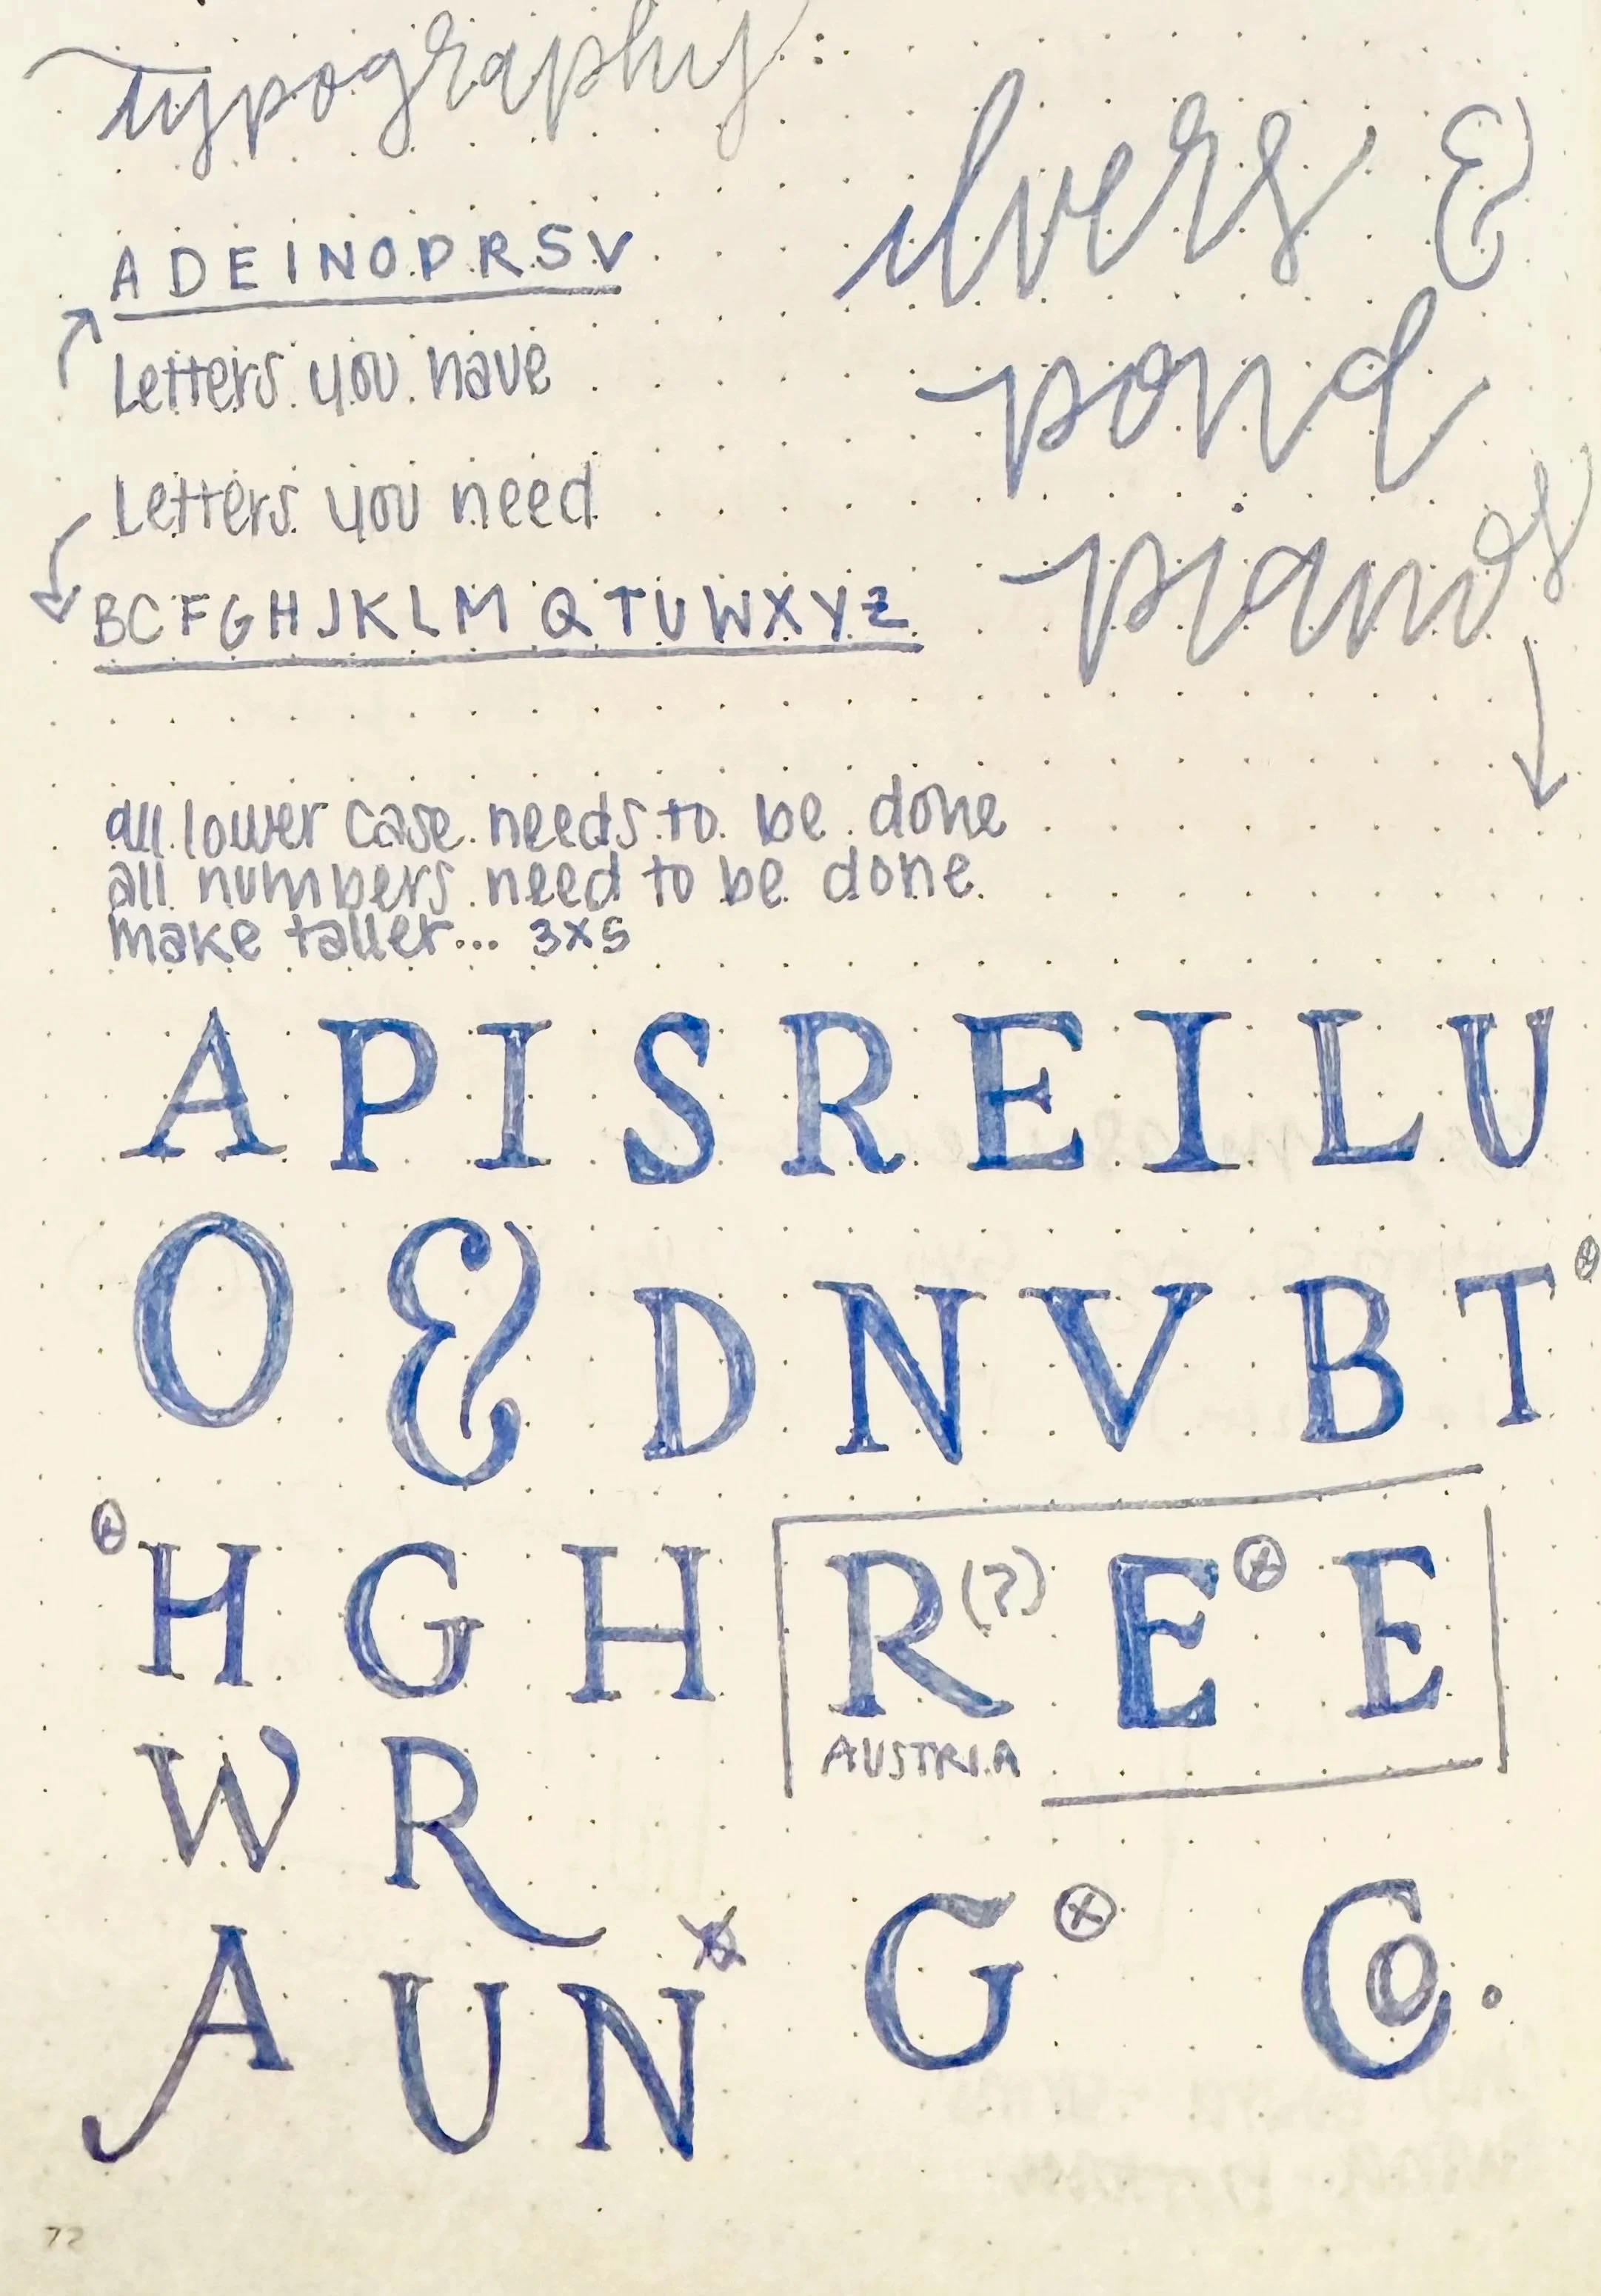 typography:
ilvers &
pond
pianos
A D E I N O P R S V
Letters you have
Letters you need
B C F G H J K L M Q T U W X Y Z
all lower case needs to be done
all numbers need to be done
make taller... 3x5
A P I S R E I L U
O & D N V B T
H G H R (?) E E
AUSTRIA
W R
A U N G Co.
72